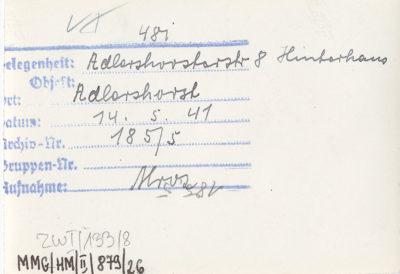 48i
elegenheit: Adlershorsterstr 8 Hinterhaus
Objekt:
Ort: Adlershorst
Datum: 14. 5. 41
Archiv-Nr. 185/5
Gruppen-Nr.
Aufnahme:
ZWI/133/8
MMG/HM/II/879/26